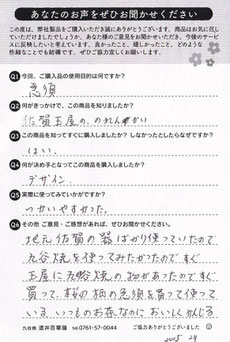 あなたのお声をぜひお聞かせください
この度は、弊社製品をご購入いただき誠にありがとうございます。商品はお気に召し
ていただけましたでしょうか。あなた様のご意見をお聞かせいただき、今後のサービス
に反映したいと考えています。良かったこと、嬉しかったこと、どのような
些細なことでも結構です。ぜひご協力宜しくお願いします。
Q1 今回、ご購入品の使用目的は何ですか?
急須
Q2 何がきっかけで、この商品を知りましたか?
佐賀玉屋の、のれん
Q3 この商品を知ってすぐに購入しましたか? しなかったとしたらなぜですか?
はい、
Q4 何が決め手となって、この商品を購入しましたか?
デザイン
Q5 実際に使ってみていかがですか?
つかいやすかった。
Q6 その他 ご意見・ご感想があれば、ぜひお聞かせください。
地元佐賀の器ばかり使っていたので
九谷焼を使ってみたかったので すぐ
玉屋に九谷焼の物があったので すぐ
買って、桜の柄の急須を買って使って
いる。いつものお茶なのに おいしくかんじる
九谷焼 酒井百華園 ℡.0761-57-0044
ご協力ありがとうございました